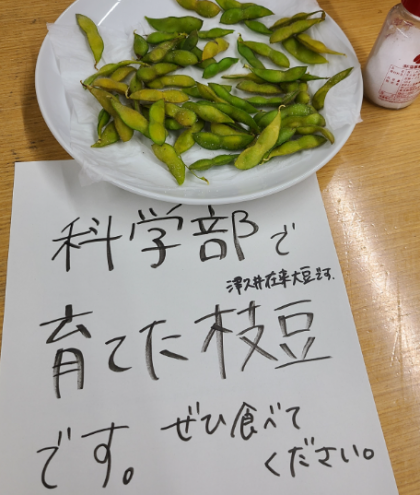 科学部で
津久井在来大豆です.
育てた枝豆
です。
ぜひ食べて
ください。